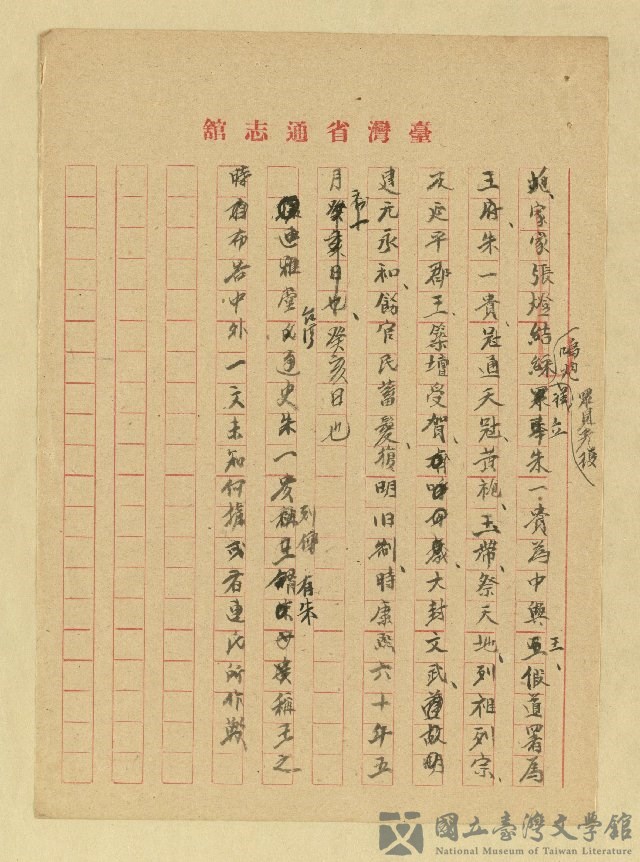 臺灣省通志館
家家張燈結綵 朱一貴為中興王、假道署為
王府、朱一貴冠通天冠、黃袍、玉帶、祭天地、列祖列宗、
及延平郡王、築壇受賀、大封文武、故明
建元永和、飭官民蓄髮、復明旧制、時康熙六十年五
月初十癸亥日也
連雅堂氏台湾通史朱一貴列傳有朱 稱王之
時布告中外一文未知何據或者連氏所作歟
國立臺灣文學館
National Museum of Taiwan Literature